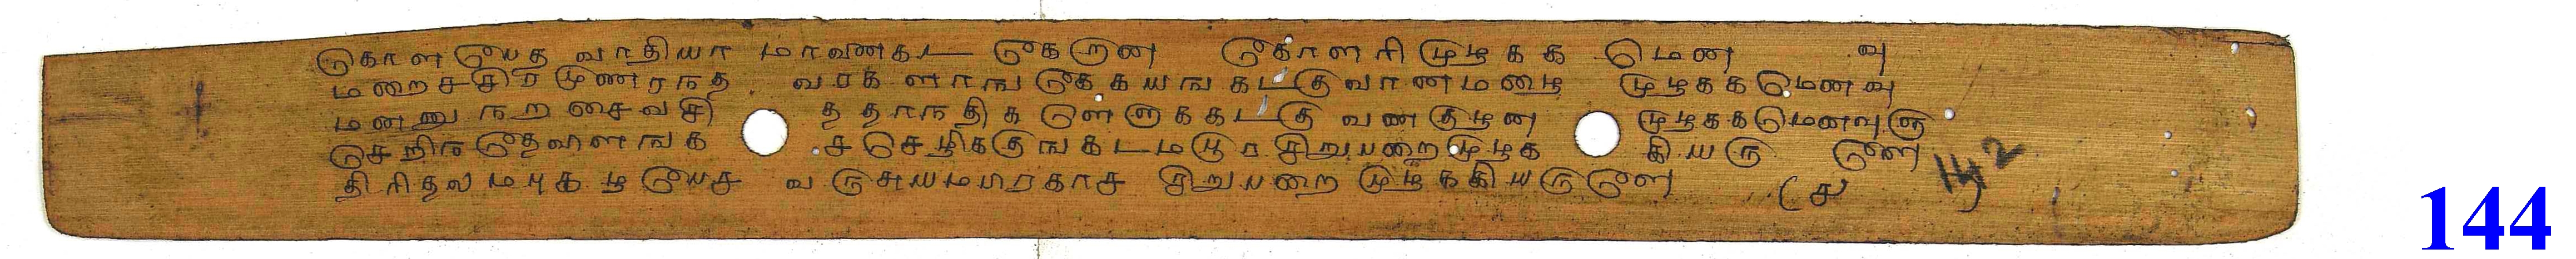 கொளபெயத வாதியா மாவணகட கெறன கொளரி முழகக மென வு
மறைசசிர முணரநத வரகளாங கெகயங கடகுவானமழை முழகக மெனவு
மனறு நற சைவசி ததாநதிக ளெளுககடகு வண குழன முழகக மெனவுளு
செறிந தெவளஙக ச செழிககுஙகடமபூர சிறுபறை முழக கியரு ளெ
திரிதல மபுக ழ பெயச வ ருசுயமபிரகாச சிறுபறை முழககியருளெ (சு
142
144